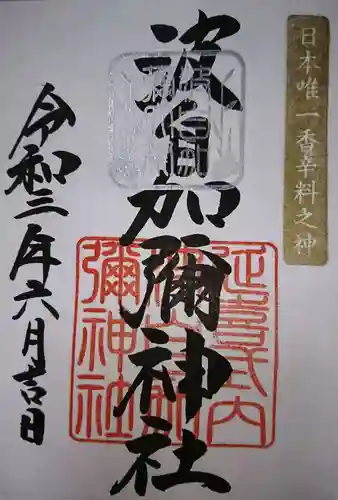 日本唯一香辛料之神
波自加彌神社
延喜式内
波自加
彌神社
令和三年六月吉日